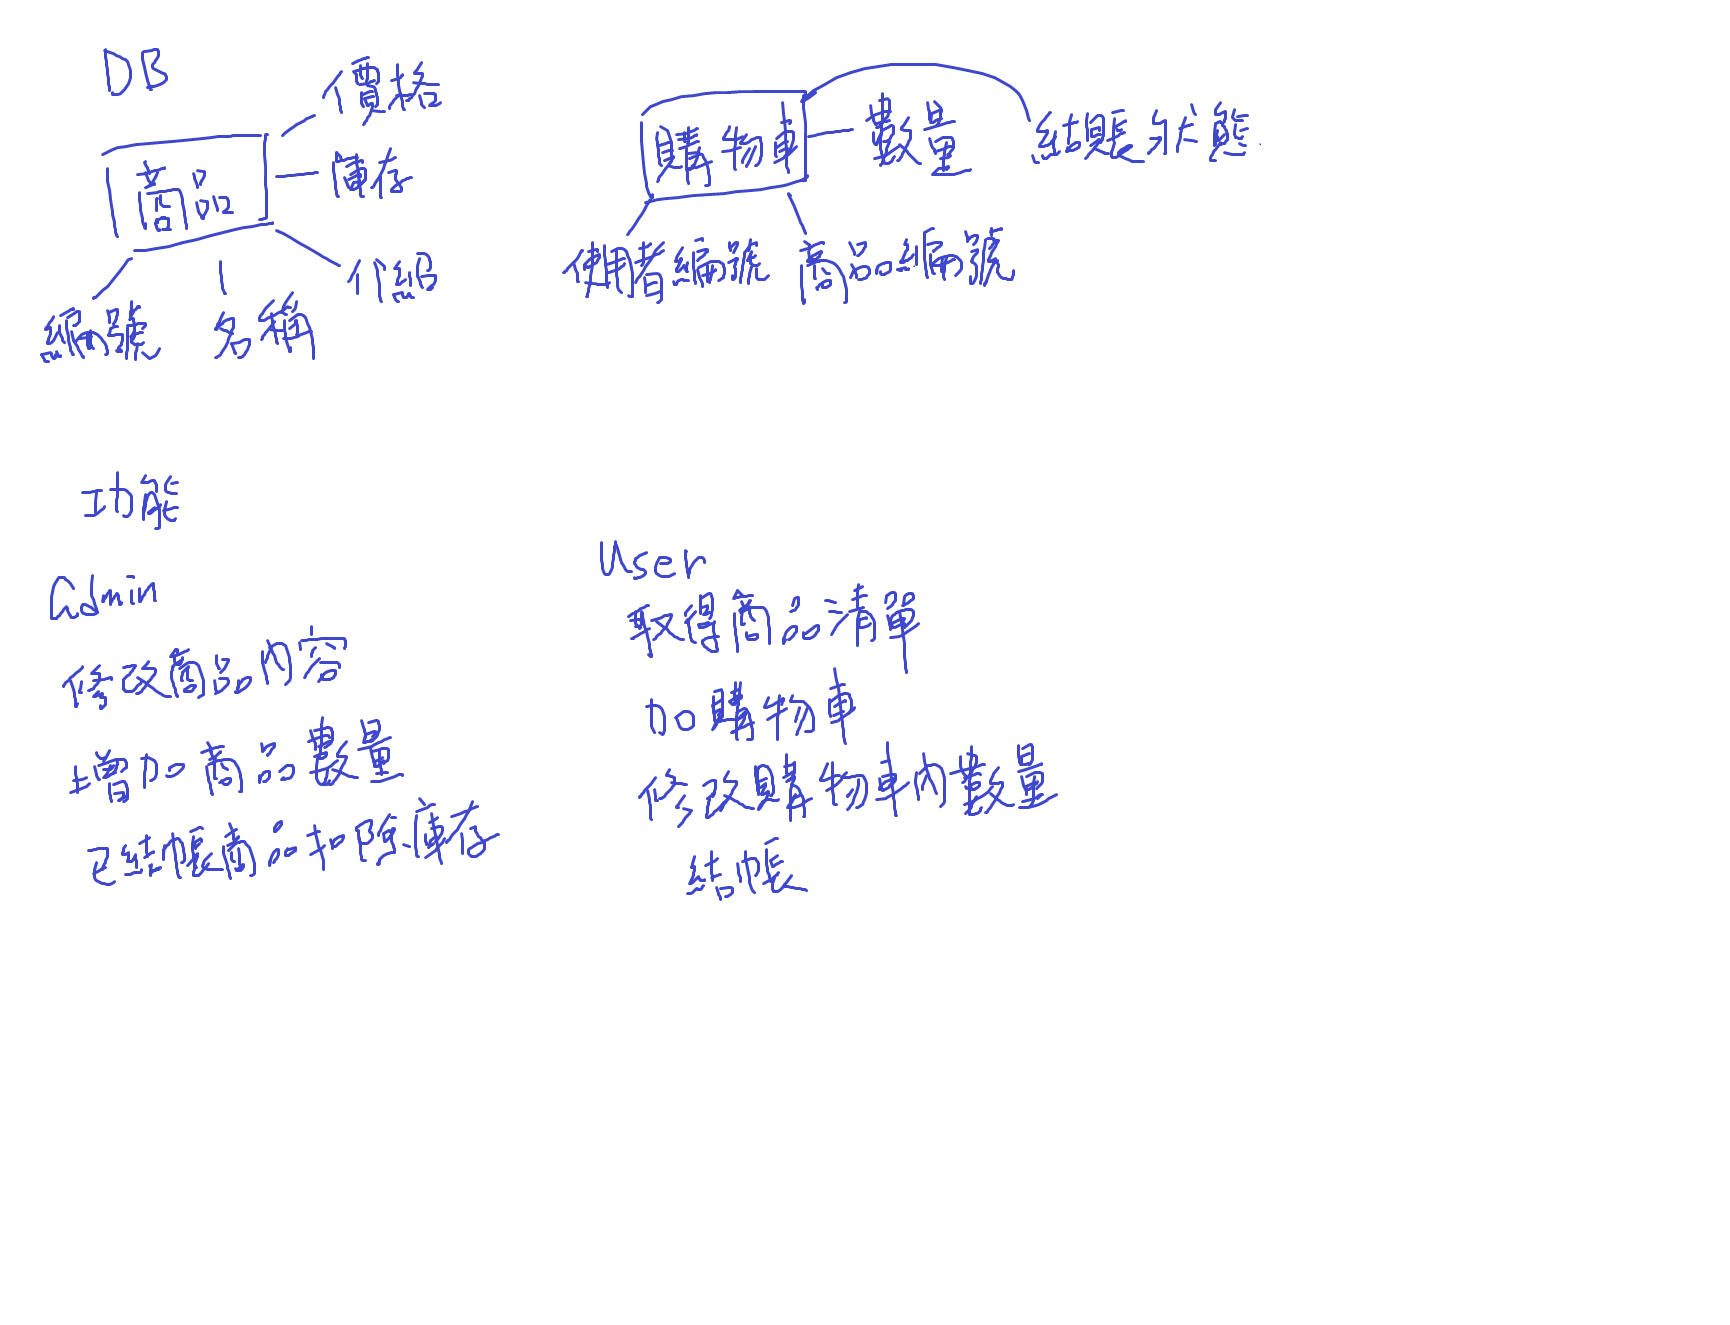 DB
價格
商品
庫存
介紹
編號
名稱
購物車
數量
結賬狀態
使用者編號
商品編號
功能
Admin
修改商品內容
增加商品數量
已結帳商品扣除庫存
User
取得商品清單
加購物車
修改購物車內數量
結帳